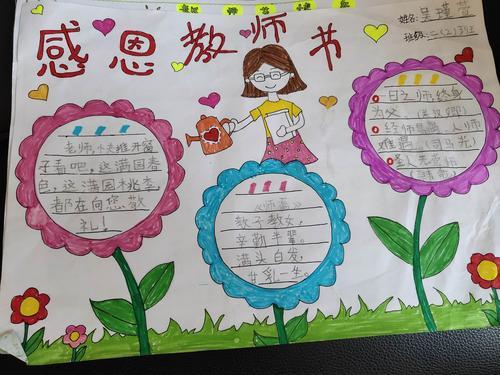 感恩教师节
姓名：吴瑾萱
班级：二(2)班
老师，快推开窗
子看吧，这满园春
色，这满园桃李，
都在向您敬
礼！
《师赢》
教子教女，
辛勤半辈。
满头白发，
甘乳一生。
一日之师，终身
为父（关汉卿）
经师易遇，人师
难遇（司马光）